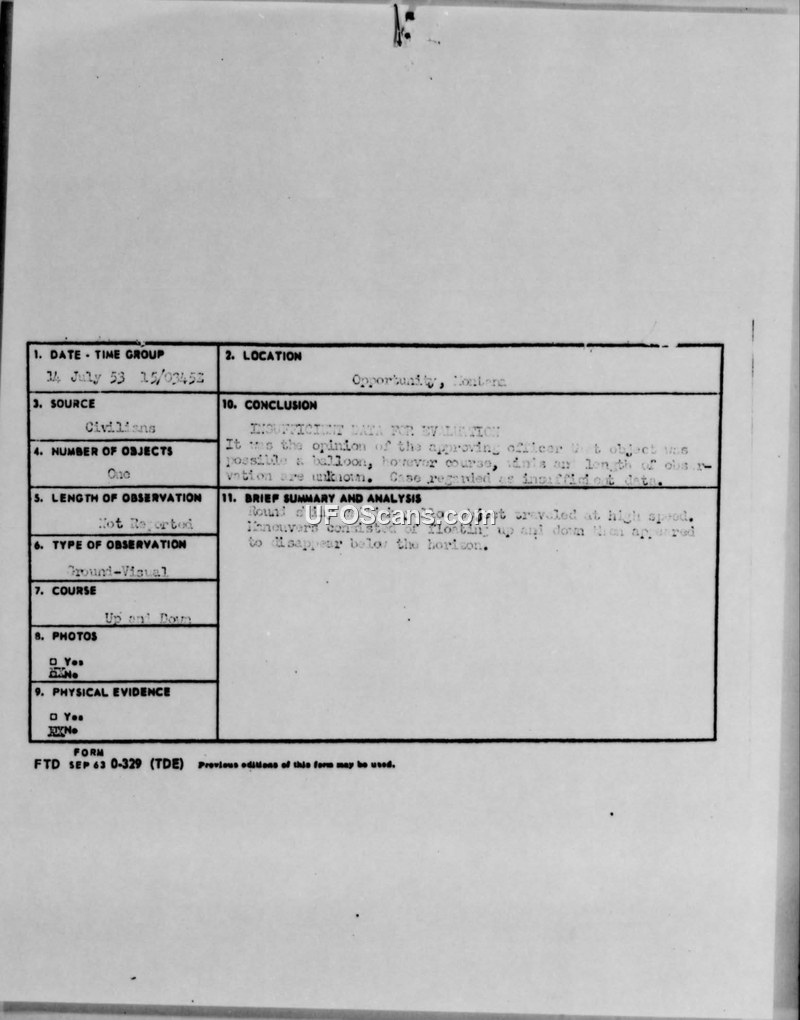 1. DATE - TIME GROUP
14 July 53 15/0345Z
2. LOCATION
Opportunity, Montana
3. SOURCE
Civilians
10. CONCLUSION
INSUFFICIENT DATA FOR EVALUATION
It was the opinion of the approving officer that object was
possible a balloon, however course, winds and length of obser-
vation are unknown. Case regarded as insufficient data.
4. NUMBER OF OBJECTS
One
5. LENGTH OF OBSERVATION
Not Reported
11. BRIEF SUMMARY AND ANALYSIS
Round object traveled at high speed.
Maneuvers consisted of floating up and down then appeared
to disappear below the horizon.
UFOScans.com
6. TYPE OF OBSERVATION
Ground-Visual
7. COURSE
Up and Down
8. PHOTOS
□ Yes
XXNo
9. PHYSICAL EVIDENCE
□ Yes
XXNo
FORM
FTD SEP 63 0-329 (TDE) Previous editions of this form may be used.